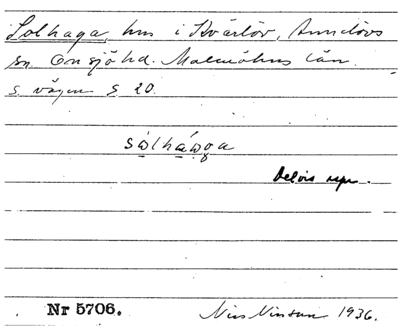 Solhaga, hus i Kvärlöv, Annelövs
sn. Onsjöhd. Malmöhus län.
S. vägen S 20.
sọ̀lhá̱ọga
Delvis upr.
Nr 5706.
Nils Ninsun 1936.